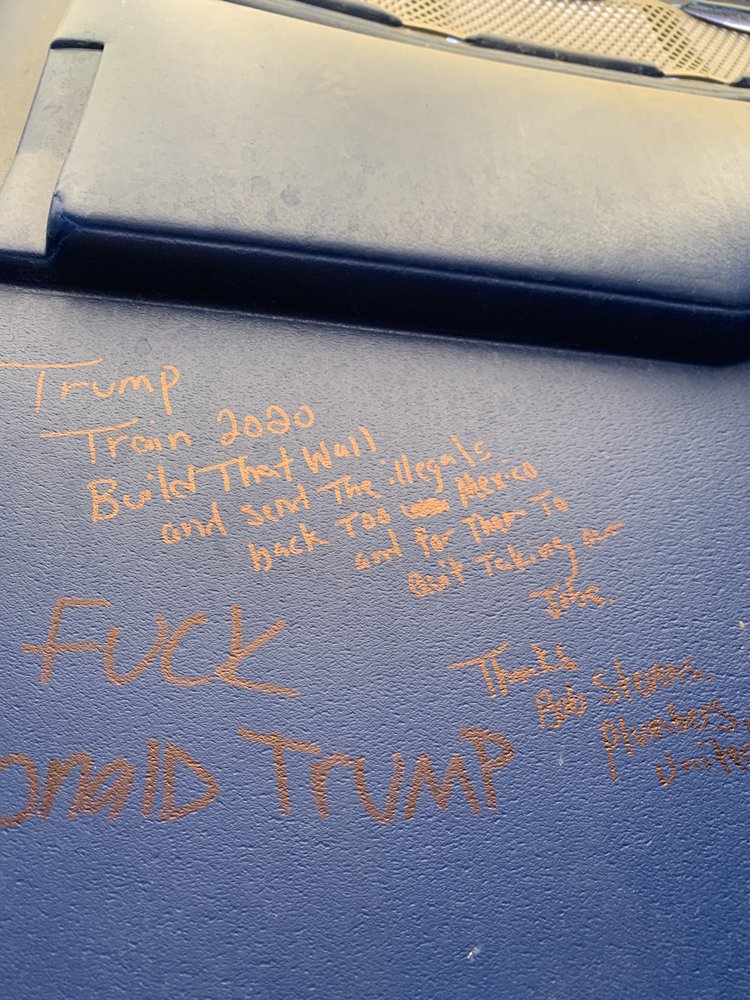 Trump
Train 2020
Build That Wall
and send The illegals
back Too Mexico
and for Them To
Quit Taking our
Jobs.
Thanks
Bob Stevens.
Plumbers.
United
FUCK
onalD TRUMP